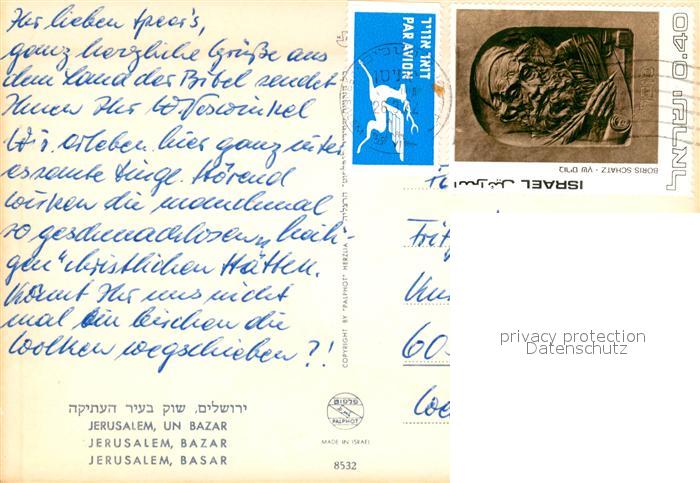 Ihr lieben Speer's,
ganz herzliche Grüße aus
dem Land der Bibel sendet
Ihnen Ihr W. Voswinkel
Wir erleben hier ganz inter
essante Dinge. Störend
wirken die manchmal
so geschmacklosen „heili-
gen" christlichen Stätten.
Könnt Ihr uns nicht
mal ein bischen die
Wolken wegschieben ?!
ירושלים, שוק בעיר העתיקה
JERUSALEM, UN BAZAR
JERUSALEM, BAZAR
JERUSALEM, BASAR
COPYRIGHT BY "PALPHOT" HERZLIA
פלפוט
PALPHOT
MADE IN ISRAEL
8532
דואר אויר
PAR AVION
0.40
ISRAEL
ישראל
BORIS SCHATZ - בוריס שץ
60
privacy protection
Datenschutz